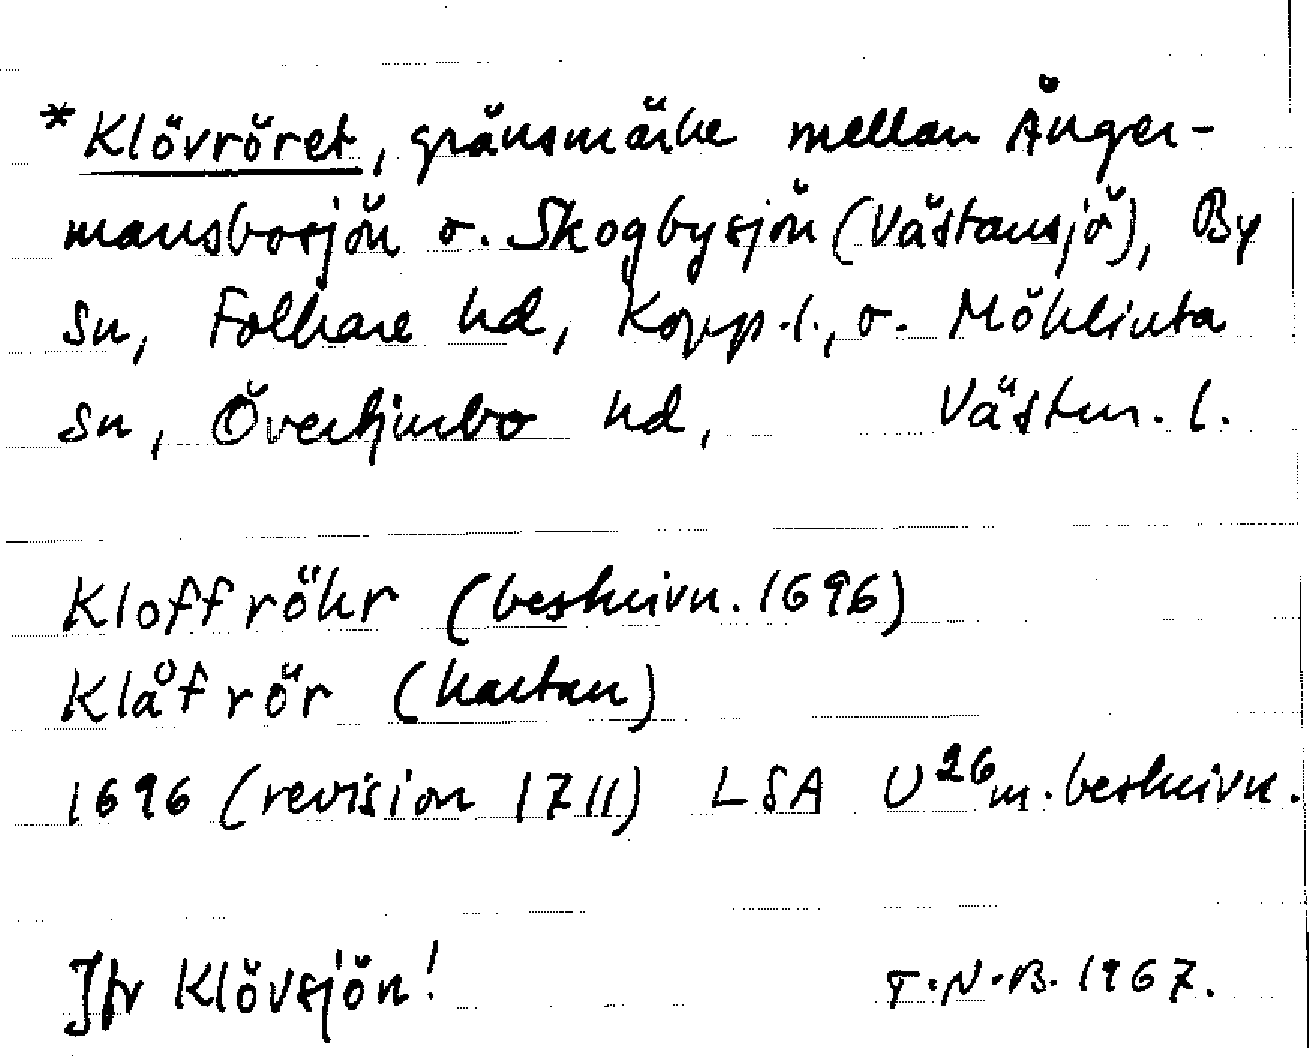 *Klövröret, gränsmärke mellan Änger-
mansbosjön o. Skogbysjön (Västansjö), By
sn, Folkare hd, Kopp. l., o. Möklinta
sn, Övertjurbo hd, Västm. l.
Kloffröhr (beskrivn. 1696)
Klåfrör (kartan)
1696 (revision 1711) LSA U26 m. beskrivn.
Jfr Klövsjön!
T.N.B. 1967.